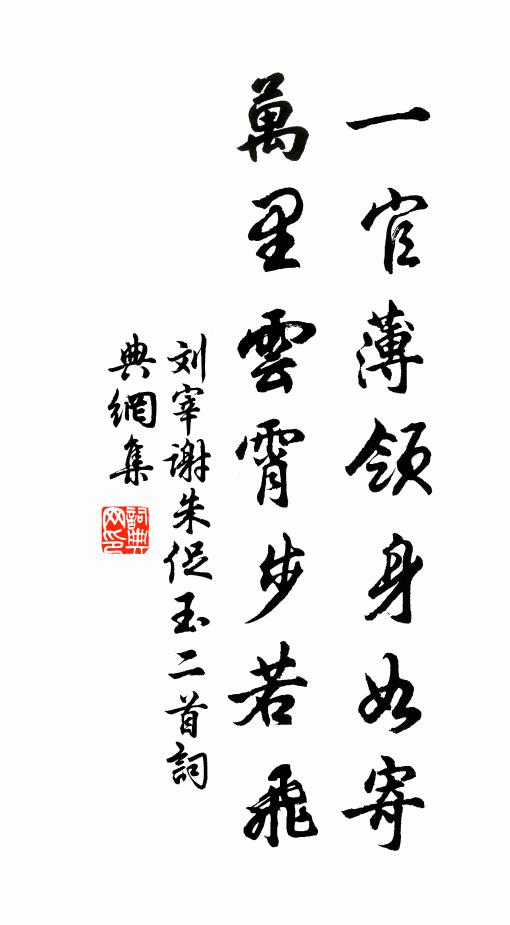 一官薄領身如寄
萬里雲霄步若飛
刘宰谢朱促玉二首詞
典網集
詞典網印